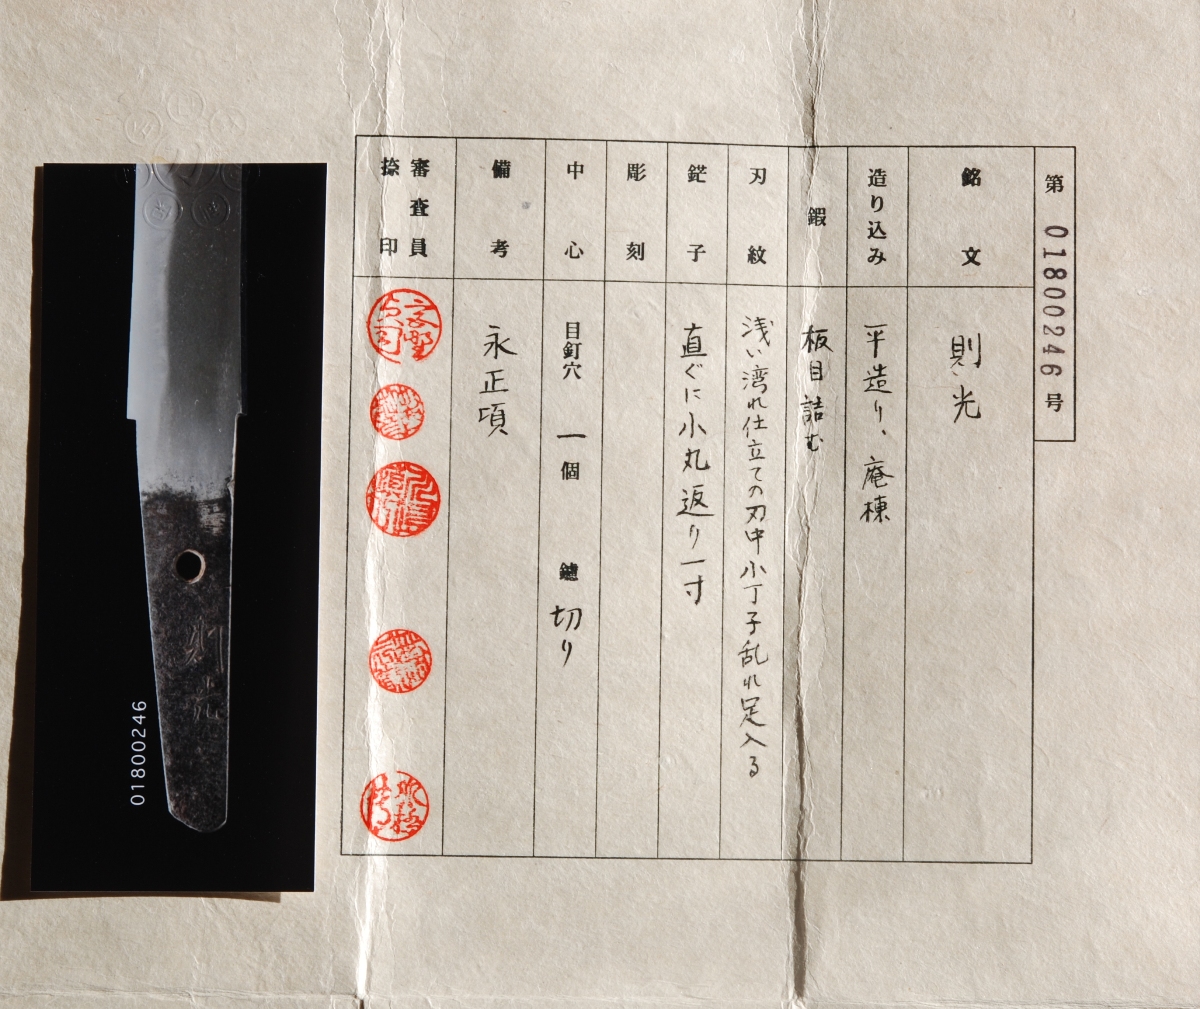 第 01800246 号
銘文 則光
造り込み 平造り、庵棟
鍜 板目詰む
刃紋 浅い湾れ仕立ての刃中小丁子乱れ足入る
鋩子 直ぐに小丸返り一寸
彫刻
中心 目釘穴 一個 鑢 切り
備考 永正頃
審査員
捺印
則光
01800246